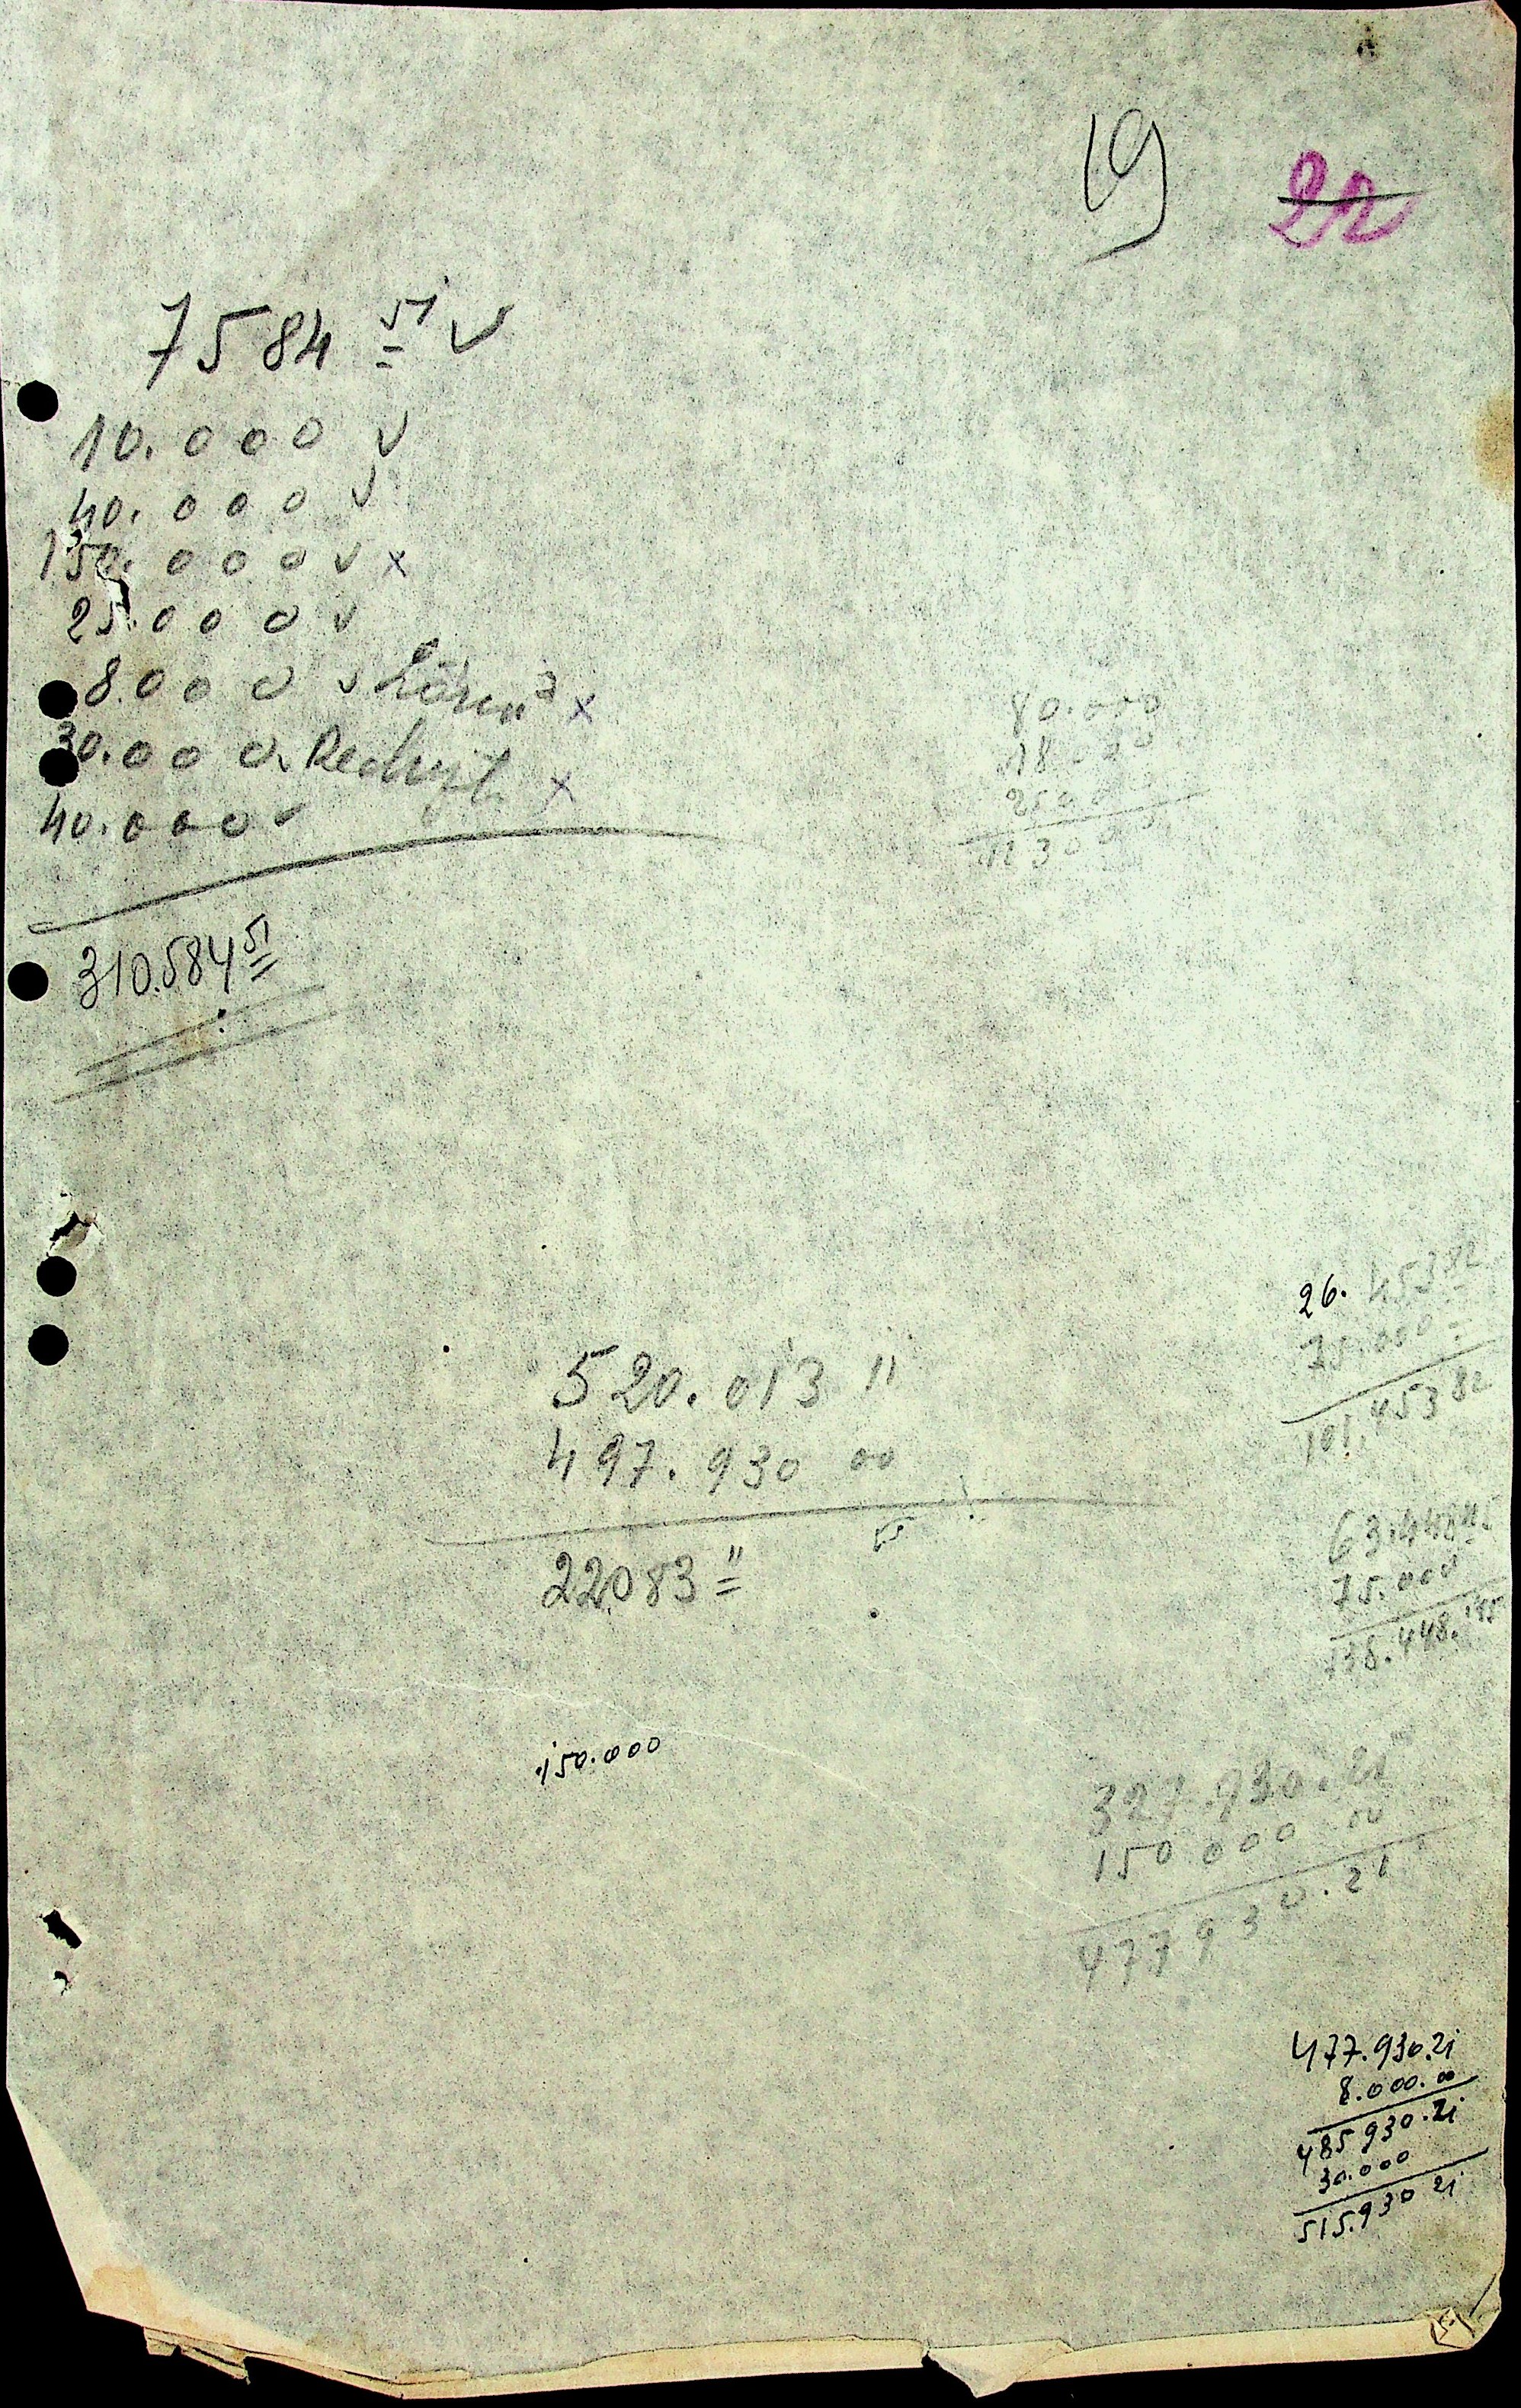 19 22
7584 51 v
10.000 v
40.000 v
150.000 v x
25.000 v
8.000 v x
30.000 x
40.000 v
310.584 51
80.000
18.000
25000
123000
26.453 82
75.000 -
101.453 82
520.013 11
497.930 00
22083 11
63.448 45
75.000
138.448.45
150.000
327.930.21
150.000 00
477930.21
477.930.21
8.000.00
485930.21
30.000
515.930 21